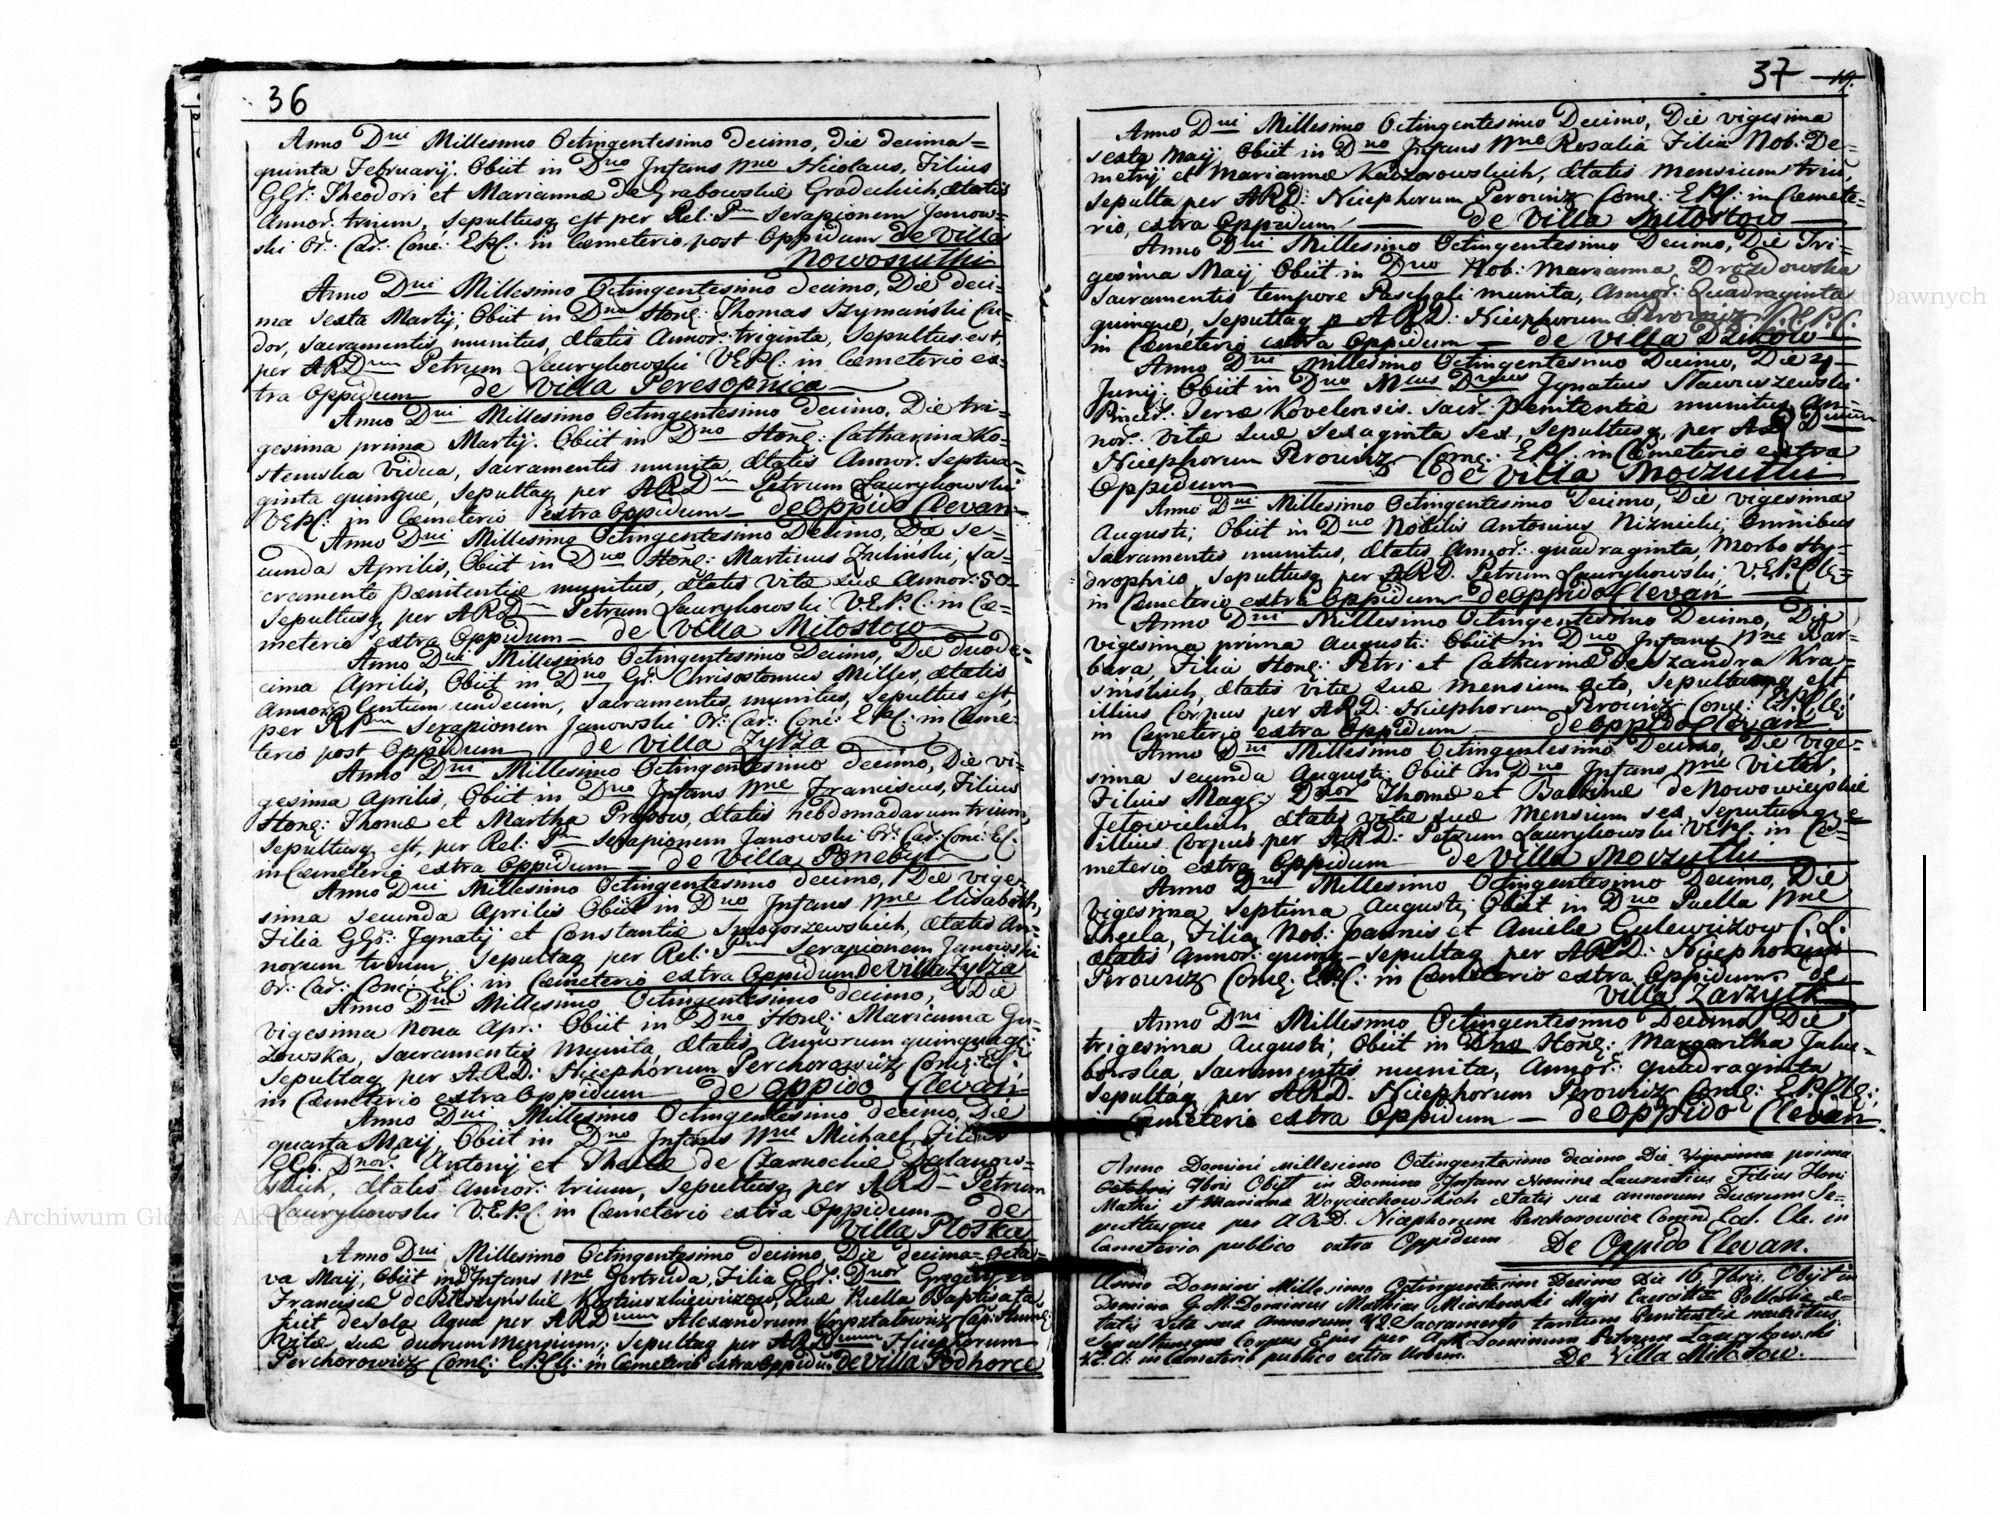 36
Anno Dni Millesimo Octingentesimo decimo, die decima=
quinta Februarij. Obiit in Dno Infans nne Nicolaus, Filius
GGr: Theodori et Mariannæ de Grabowskie Grodeckich, ætatis
Annor. trium, sepultusq est per Rel: Pm Serapionem Janow=
ski Or: Car: Conc: EPC: in Cæmeterio post Oppidum de Villa
Nowosiulki
Anno Dni Millesimo Octingentesimo decimo, Die deci=
ma sexta Martij, Obiit in Dno Hone: Thomas Szymański Cu=
dor, Sacramentis munitus, ætatis Annor: triginta, Sepultus est,
per ARDnm Petrum Laurykowski VEPC: in Cæmeterio ex=
tra Oppidum de Villa Peresopnica
Anno Dni Millesimo Octingentesimo decimo, Die tri=
gesima prima Martij. Obiit in Dno Hone: Catharina Ko=
stemska Vidua, Sacramentis munita, ætatis Annor. Septua=
ginta quinque, Sepultaq per ARDm Petrum Laurykowski
VEPC: in Cæmeterio extra Oppidum — de Oppido Clevan
Anno Dni Millesimo Octingentesimo Decimo, Die Se=
cunda Aprilis, Obiit in Dno Hone: Martinus Zielinski, Sa=
cramento Pænitentiæ munitus, ætatis Vitæ suæ Annor: 50
Sepultusq per ARDm Petrum Laurykowski V.E.P.C. in Cæ=
meterio extra Oppidum — de Villa Mitostow
Anno Dni Millesimo Octingentesimo Decimo, Die duode=
cima Aprilis, Obiit in Dno Gr: Chrisostomus Miller, ætatis
Annor: Centum undecim, Sacramentis, munitus, Sepultus est,
per RPm Serapionem Janowski Or: Car: Conc: EPC: in Cæme=
terio post Oppidum de Villa Zylża
Anno Dni Millesimo Octingentesimo decimo, Die vi=
gesima Aprilis, Obiit in Dno Infans nne Franciscus, Filius
Hone: Thomæ et Martha ætatis hebdomadarum trium,
Sepultusq est, per Rel: Pm Serapionem Janowski Or: Car: Conc: EC:
in Cæmeterio extra Oppidum — de Villa Ponebyl
Anno Dni Millesimo Octingentesimo decimo, Die vige=
sima Secunda Aprilis Obiit in Dno Infans nne Elisabeth,
Filia GGr: Ignatij et Constantiæ Smogorzewskich, ætatis An=
norum trium, Sepultaq per Rel: Pm Serapionem Janowski
Or: Car: Conc: EC: in Cæmeterio extra Oppidum de Villa Zylża
Anno Dni Millesimo Octingentesimo decimo, Die
vigesima nona Apr: Obiit in Dno Hone: Marianna Gu=
zowska, Sacramentis Munita, ætatis, Annorum quinquagi:
Sepultaq per A.R.D: Nicephorum Perchorowicz Comę: EC:
in Cæmeterio extra Oppidum — de Oppido Clevan
Anno Dni Millesimo Octingentesimo decimo, Die
quarta Maij, Obiit in Dno Infans nne Michael, Filius
GGr: Dnor. Antonij et Theclæ de Czarnockie
ætatis Annor: trium, Sepultusq per ARD — Petrum
Laurykowski V.E.P.C. in Cæmeterio extra Oppidum — de
Villa Płoska
Anno Dni Millesimo Octingentesimo decimo, Die decima-octa=
va Maij, Obiit in Dno Infans nne Gertruda, Filia GGr: Dnor Gregorij et
Francisca quæ Puella Baptisata
fuit de sola Aqua per ARDnum Alexandrum
Vitæ suæ duorum Mensium, Sepultaq per ARDnum Nicephorum
Perchorowicz Comę: EPCle: in Cæmeterio extra Oppidum de Villa Podhorce
37 19.
Anno Dni Millesimo Octingentesimo Decimo, Die vigesima
sexta Maij, Obiit in Dno Infans nne Rosalia Filia Nob: De=
metrij et Mariannæ Kaczorowskich, ætatis mensium trium,
Sepulta per ARD: Nicephorum Perowicz Comę: EPC: in Cæmete=
rio, extra Oppidum — de Villa Mitostow
Anno Dni Millesimo Octingentesimo Decimo, Die Tri=
gesima Maij Obiit in Dno Nob: Marianna Drozdowska
Sacramentis tempore Paschali munita, Annor: Quadraginta
quinque, Sepultaq p ARD: Nicephorum Perowicz C.E.P.C.
in Cæmeterio extra Oppidum — de Villa Dzikow
Anno Dni Millesimo Octingentesimo Decimo, Die 4
Junij, Obiit in Dno Mcus Dnus Ignatius Stawiszewski
Terræ Kovelensis. Sacr: Penitentiæ munitus, An=
nor: Vitæ suæ Sexaginta Sex, Sepultusq per ARDnum
Nicephorum Perowicz Comę: EPC: in Cæmeterio extra
Oppidum — de Villa Moszulki
Anno Dni Millesimo Octingentesimo Decimo, Die vigesima
Augusti, Obiit in Dno Nobilis Antonius Niznicki, Omnibus
Sacramentis munitus, ætatis Annor: quadraginta, Morbo Hy=
drophico, Sepultusq per ARD. Petrum Laurykowski, V.E.P.Cle
in Cæmeterio extra Oppidum — de Oppido Clevan
Anno Dni Millesimo Octingentesimo Decimo, Die
vigesima prima Augusti: Obiit in Dno Infans nne Bar=
bara, Filia Hone: Petri et Catharinæ de Szandra Kra=
sinskich, ætatis vitæ suæ mensium octo, Sepultumq est
illius Corpus per ARD: Nicephorum Perowicz Comę: E.P.Cle:
in Cæmeterio extra Oppidum — de Oppido Clevan
Anno Dni Millesimo Octingentesimo Decimo, Die Vige=
sima Secunda Augusti, Obiit in Dno Infans nne Victor,
Filius Magc: Dnor Thomæ et Balbinæ de Nowowieyskie
Jełowickich ætatis vitæ suæ mensium sex, Sepultumq e
illius Corpus per ARD: Petrum Laurykowski VEPC. in Cæ=
meterio extra Oppidum — de Villa Moszulki
Anno Dni Millesimo Octingentesimo Decimo, Die
Vigesima Septima Augusti, Obiit in Dno Puella nne
Thecla, Filia Nob: Joannis et Anielæ Gulewiczow C.L.
ætatis Annor: quinq — Sepultaq per ARD: Nicephorum
Perowicz Comę: EPC: in Cæmeterio extra Oppidum de
Villa Zarzyck
Anno Dni Millesimo Octingentesimo Decimo Die
trigesima Augusti, Obiit in Dno Hone: Margaritha Jaku=
bowska, Sacramentis munita, Annor: quadraginta
Sepultaq per ARD. Nicephorum Perowicz Comę: E.P.Cle:
Cæmeterio extra Oppidum — de Oppido Clevan.
Anno Domini Millesimo Octingentesimo decimo Die vigesima prima
Octobris 7bris Obijt in Domino Infans Nomine Laurentius Filius Honi
Mathei et Marianæ Woyciechowskich ætatis suæ annorum duorum Se=
pultusque per A.R.D. Nicephorum Perchorowicz Comend Ecl. Cle. in
Cæmeterio publico extra Oppidum De Oppido Clevan.
Anno Domini Millesimo Octingentesimo Decimo Die 16 7bris. Obijt in
Domino G.M. Dominus Mathias Miaskowski Major Exercitus Poloniæ æ=
tatis vitæ suæ Annorum 42 Sacramento tantum Penitentiæ munitus
Sepultumque Corpus Ejus per A.R. Dominum Petrum Laurykowski
V.E.Cl. in Cæmeterio publico extra Urbem. De Villa Milostow.
Archiwum Główne Akt Dawnych
Archiwum Główne Akt Dawnych